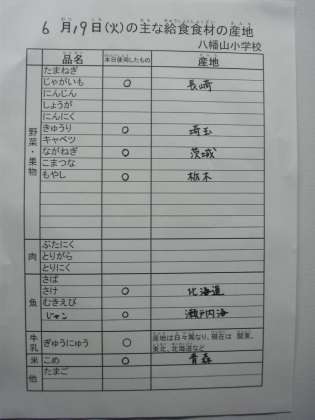 6月19日(火)の主な給食食材の産地
八幡山小学校
品名 本日使用したもの 産地
野菜・果物
たまねぎ
じゃがいも ○ 長崎
にんじん
しょうが
にんにく
きゅうり ○ 埼玉
キャベツ
ながねぎ ○ 茨城
こまつな
もやし ○ 栃木
肉
ぶたにく
とりがら
とりにく
魚
さば
さけ ○ 北海道
むきえび
じゃこ ○ 瀬戸内海
牛乳 ぎゅうにゅう ○ 産地は日々異なり、現在は 関東、
東北、北海道など
米 こめ ○ 青森
他 たまご